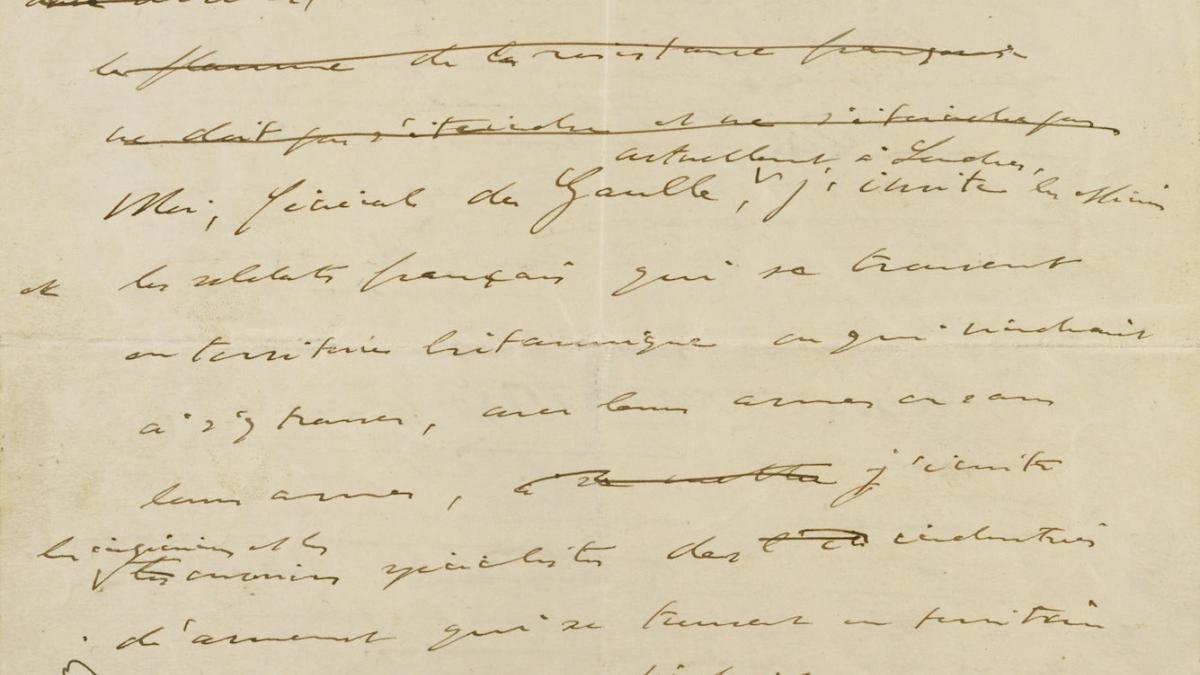 la flamme de la résistance française
ne doit pas s'éteindre et ne s'éteindra pas
actuellement à Londres,
Moi, Général de Gaulle, j'invite les officiers
et les soldats français qui se trouvent
en territoire britannique ou qui viendraient
à s'y trouver, avec leurs armes ou sans
leurs armes, à se mettre j'invite
les ingénieurs et les
les ouvriers spécialistes des industries
d'armement qui se trouvent en territoire